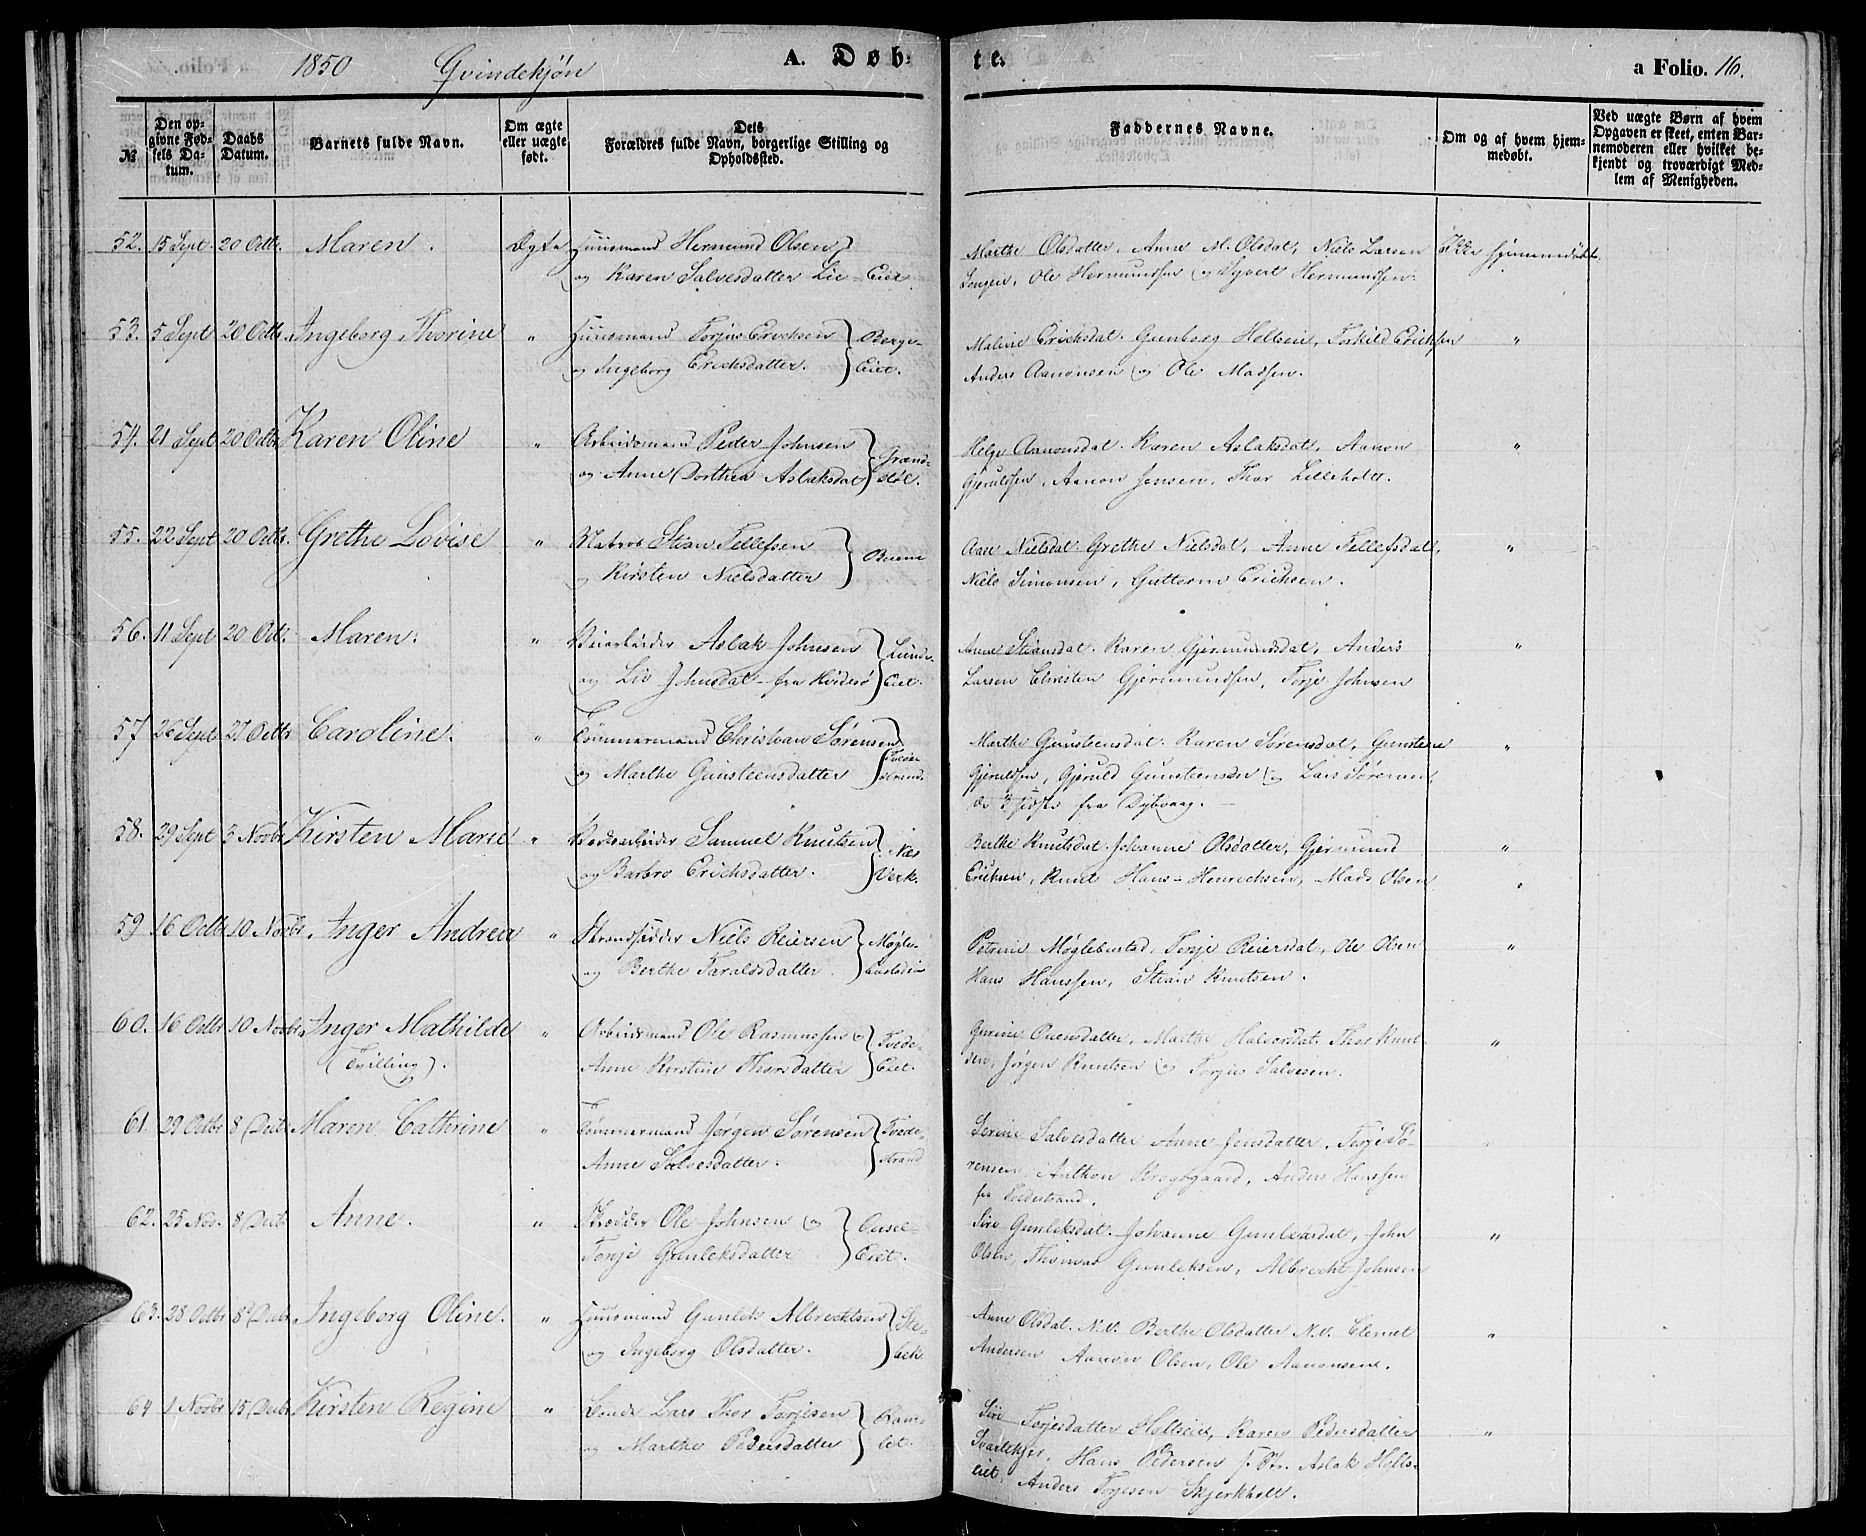 1850 Qvindekjøn A. Døbte. a Folio. 16.
№
Den opgivne Fødsels Datum.
Daabs Datum.
Barnets fulde Navn.
Om ægte eller uægte født.
Dets Forældres fulde Navn, borgerlige Stilling og Opholdssted.
Faddernes Navne.
Om og af hvem hjemmedøbt.
Ved uægte Børn af hvem Opgaven er skeet, enten Barnemoderen eller hvilket bekjendt og troværdigt Medlem af Menigheden.
52. 15 Sept. 20 Octbr. Maren. Ægte Huusmand Hermund Olsen
og Karen Salvesdatter Lie-Eiet.
Marthe Olsdatter, Anne M. Olsdat, Niels Larsen Ikke hjemmedøbt.
Songen, Ole Hermundsen og Syvert Hermundsen.
53. 5 Sept 20 Octbr Ingeborg Thorine " Huusmand Torjus Erichsen Berge-
og Ingeborg Erichsdatter. Eiet.
Malene Erichsdat. Gunborg Holtseie, Torkild Erichsen "
Anders Aanonsen og Ole Madsen.
54. 21 Sept 20 Octbr Karen Oline " Arbeidsmand Peder Johnsen Grænd-
og Anne Dorthea Aslaksdat støl.
Helge Aanonsdat. Karen Aslaksdat, Aanon "
Gjeruldsen, Aanon Jensen, Thor Lilleholt.
55. 22 Sept 20 Octbr. Grethe Lovise " Matros Stian Tellefsen
og Kirsten Nielsdatter
Aase Nielsdat. Grethe Nielsdat, Anne Tellefsdat, "
Niels Simonsen, Guttorm Erichsen.
56. 11 Sept 20 Oct. Maren. " Veiarbeider Aslak Johnsen Lunde-
og Liv Johnsdat - fra Hvidesø Eiet.
Anne Stiansdat. Karen Gjermundsdat, Anders "
Larsen Christen Gjermundsen, Torje Johnsen
57 26 Sept 27 Octbr Caroline. " Tømmermand Christian Sørensen Tvede-
og Marthe Gunsteensdatter strand
Marthe Gunsteensdat. Karen Sørensdat, Gunsteen "
Gjeruldsen, Gjeruld Gunsteensen og Lars Sørensen,
de 3 sidste fra Dybvaag.
58. 29 Sept 3 Novbr Kirsten Marie " Samuel Knutsen Næs
og Barbro Erichsdatter. Verk.
Berthe Knutsdat. Johanne Olsdatter, Gjermund "
Erichsen, Knut Hans-Henrichsen, Mads Olsen
59 16 Octbr 10 Novbr. Inger Andrea " Strandsidder Niels Reiersen Møgle-
og Berthe Taraldsdatter.
Petrine Møglebostad, Torje Reiersdat, Ole Olsen "
Hans Hanssen, Stian Knutsen.
60. 16 Octbr 10 Novbr. Inger Mathilde " Arbeidsmand Ole Rasmussen og Tvede-
(Tvilling). Anne Kirstine Thorsdatter Eiet.
Gurine Ouensdatter, Marthe Halvorsdat. Thor Knut-
sen, Jørgen Knutsen og Torjus Salvesen. "
61. 29 Octbr 8 Decbr Maren Cathrine " Tømmermand Jørgen Sørensen Tvede-
Anne Salvesdatter. strand
Serine Salvesdatter Anne Jensdatter, Torje Sø-
rensen, Anthon Krogsgaard, Anders Hanssen
fra Tvedestrand.
62. 25 Nov. 8 Decbr Anne. " Skrædder Ole Johnsen og Ousel-
Torje Gunleksdatter Eiet.
Siri Gunleksdat. Johanne Gunleksdat, John "
Olsen, Thomas Gunleksen, Albrecht Johnsen
63. 28 Octbr 8de Decbr. Ingeborg Oline. " Huusmand Gunlek Albrechtsen Ske-
og Ingeborg Olsdatter. bek
Anne Olsdat. N.V. Berthe Olsdatter N.V. Clemet "
Andersen Aanon Olsen, Ole Aanonsen.
64 1 Novbr 15 Decbr Kirsten Regine " Bonde Lars Thor Torjesen Ram-
og Marthe Pedersdatter let.
Siri Torjesdatter Holtseiet, Karen Pedersdatter "
Svartekjær, Hans Pedersen Aslak Holts-
eiet, Anders Torjesen Skjerkholt.